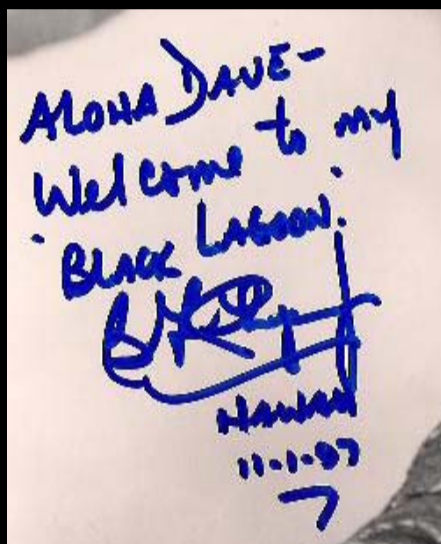 ALOHA DAVE-
Welcome to my
"BLACK LAGOON."
HAWAII
11-1-97